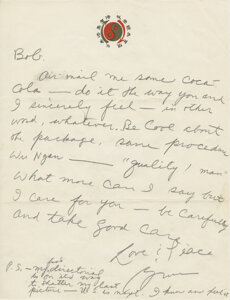 Bob,
Air mail me some Coca-
Cola — do it the way you and
I sincerely feel — in other
word, whatever. Be Cool about
the package, same procedure
Wu Ngan — "quality, man"
What more can I say but
I care for you — be carefully
and take good care
Love & Peace
P.S. — my directorial
job is on its way
to better my last
picture —